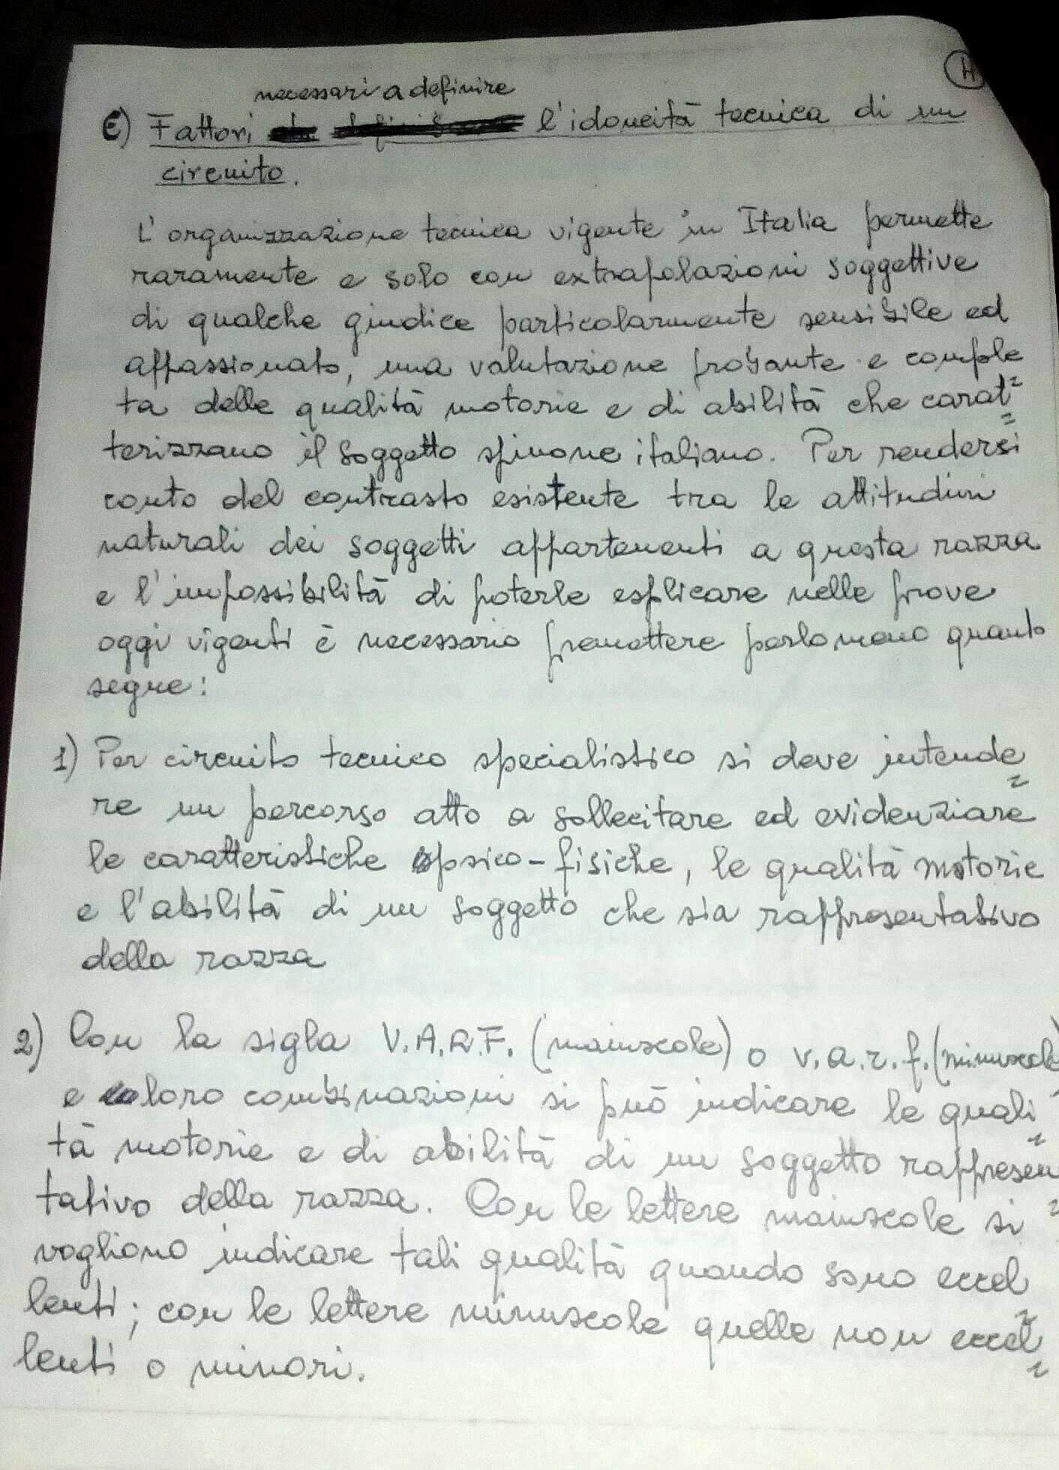 H
necessari a definire
E) Fattori l'idoneità tecnica di un
circuito.
L'organizzazione tecnica vigente in Italia permette
raramente e solo con extrapolazioni soggettive
di qualche giudice particolarmente sensibile ed
appassionato, una valutazione probante e comple
ta delle qualità motorie e di abilità che carat=
terizzano il soggetto spinone italiano. Per rendersi
conto del contrasto esistente tra le attitudini
naturali dei soggetti appartenenti a questa razza
e l'impossibilità di poterle esplicare nelle prove
oggi vigenti è necessario premettere perlomeno quanto
segue:
1) Per circuito tecnico specialistico si deve intende=
re un percorso atto a sollecitare ed evidenziare
le caratteristiche psico-fisiche, le qualità motorie
e l'abilità di un soggetto che sia rappresentativo
della razza
2) Con la sigla V.A.R.F. (maiuscole) o v.a.r.f. (minuscole)
e loro combinazioni si può indicare le quali=
tà motorie e di abilità di un soggetto rappresen=
tativo della razza. Con le lettere maiuscole si
vogliono indicare tali qualità quando sono eccel=
lenti; con le lettere minuscole quelle non eccel=
lenti o minori.